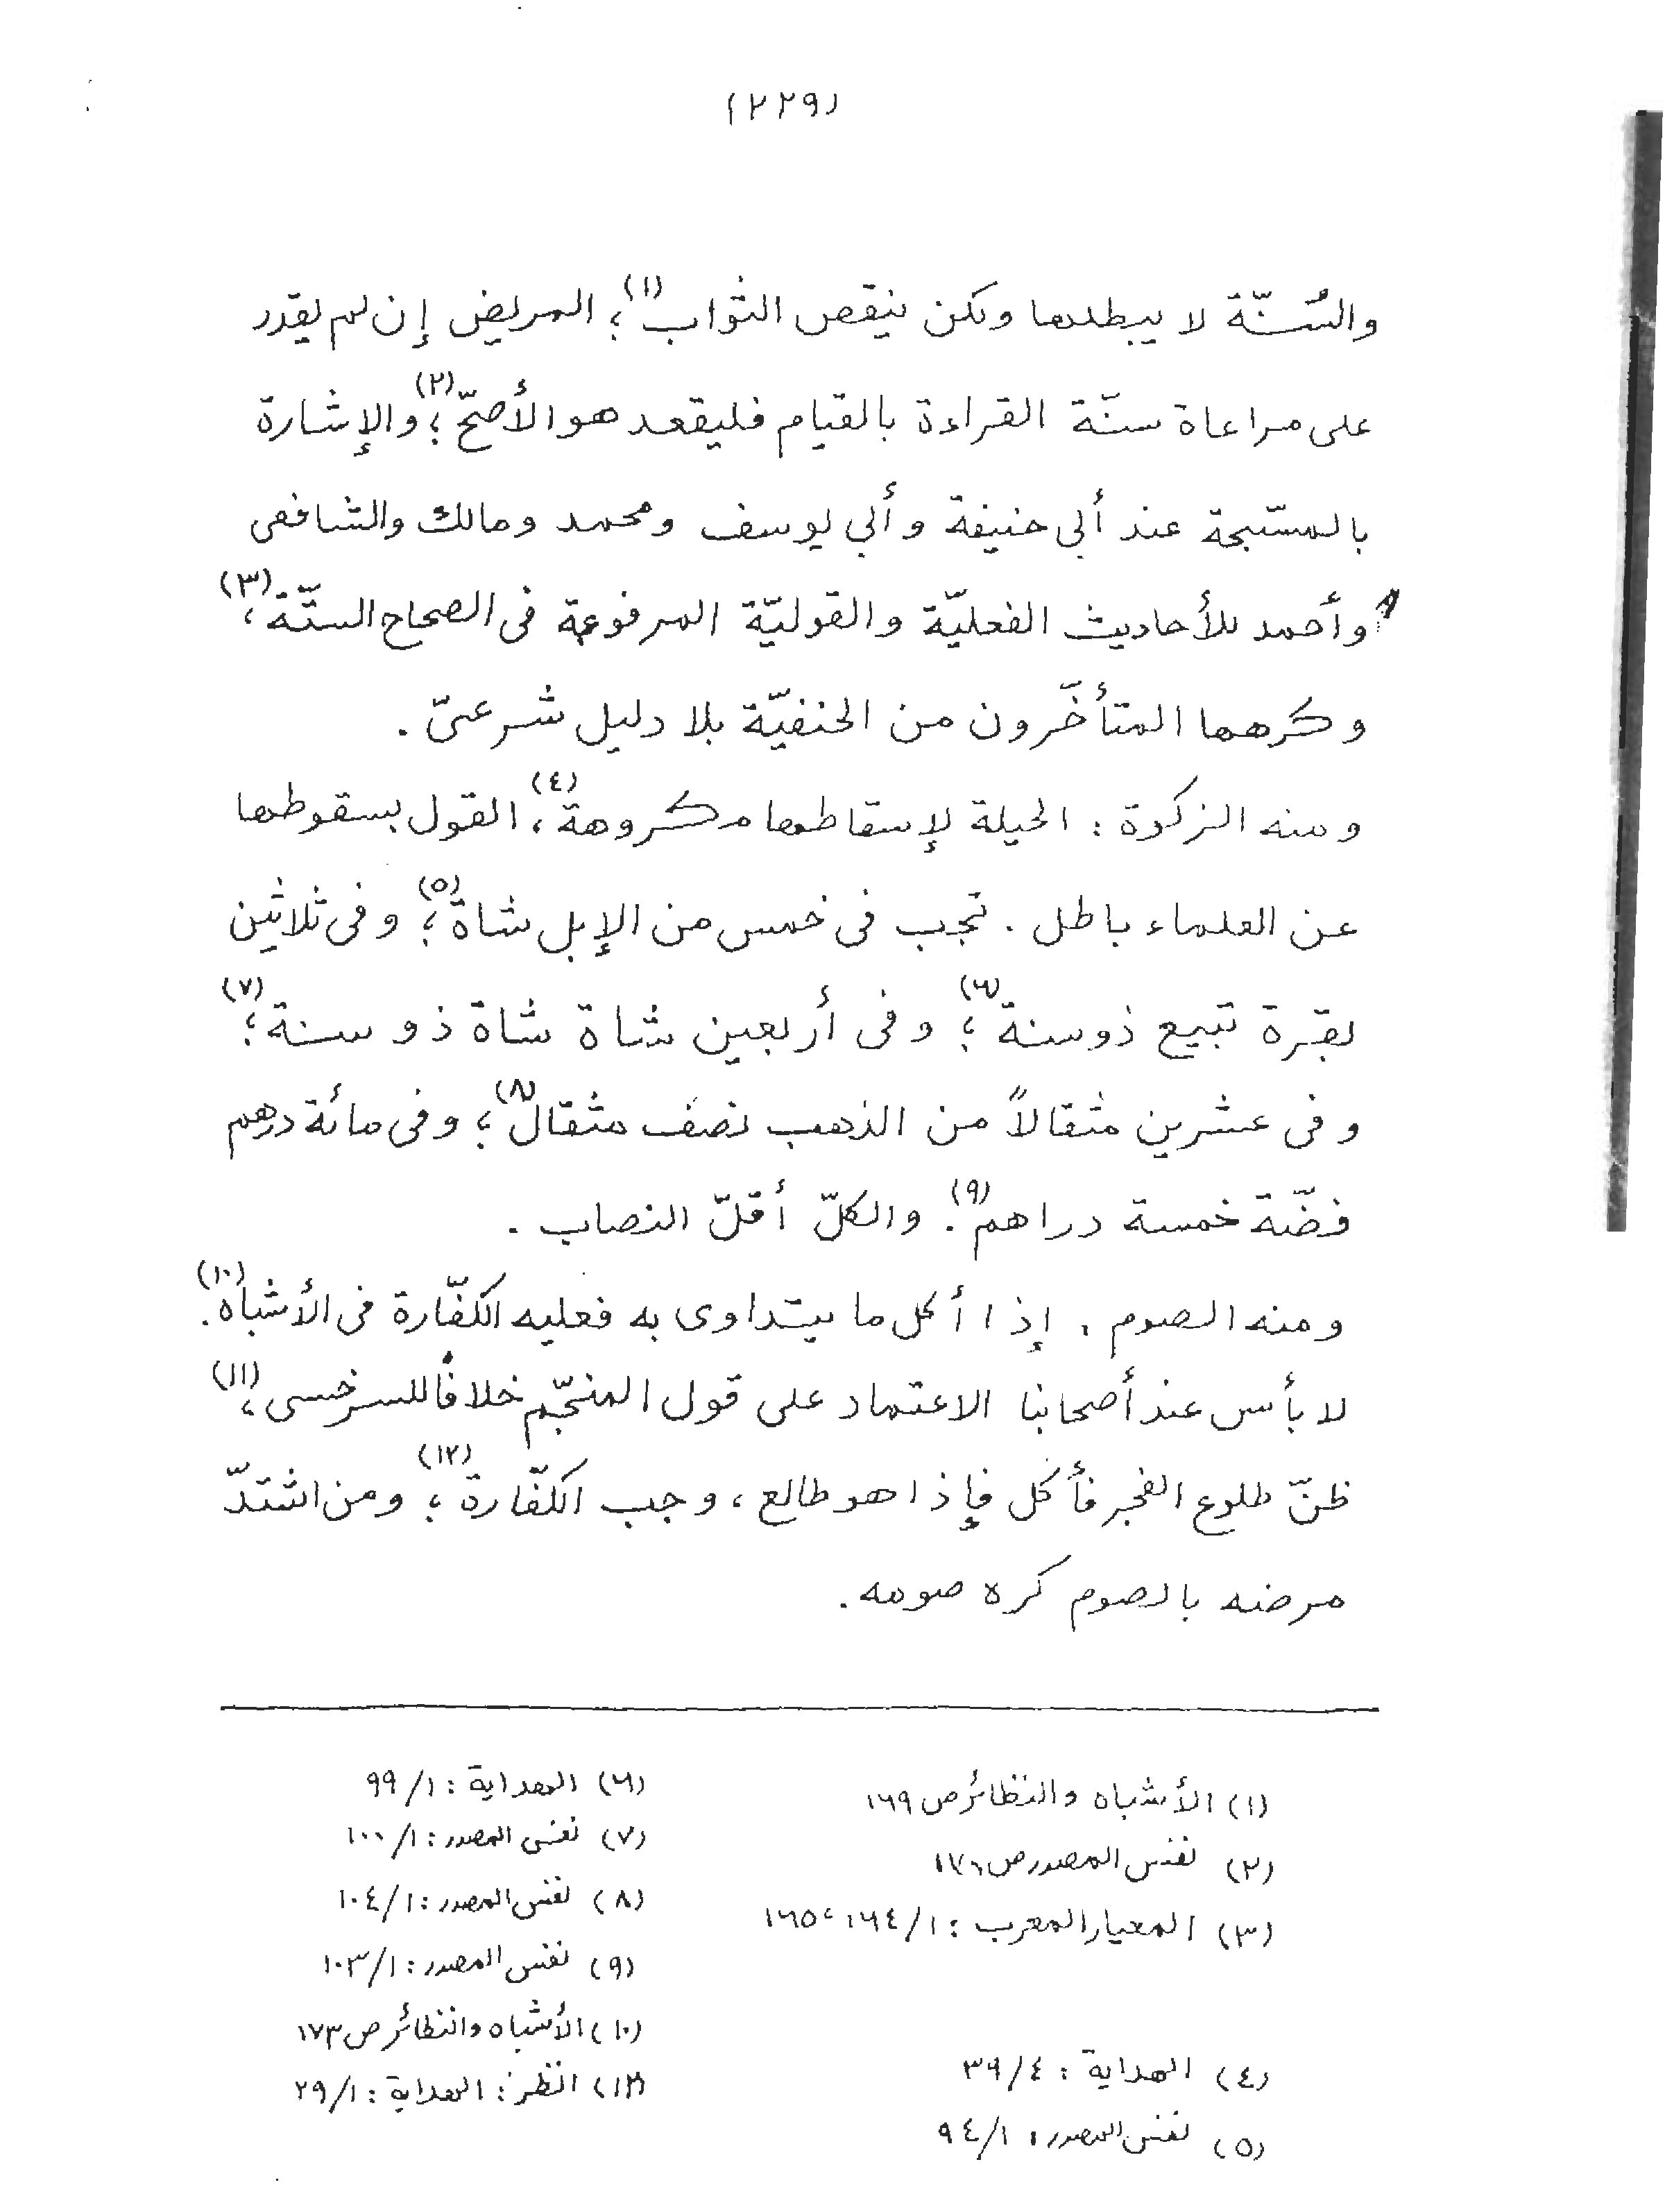 (٢٢٩)
والسُنّة لا يبطلها ولكن ينقص الثواب(١)؛ المريض إن لم يقدر
على مراعاة سنّة القراءة بالقيام فليقعد هو الأصحّ(٢)؛ والإشارة
بالمسّبحة عند أبى حنيفة وأبي يوسف ومحمد ومالك والشافعى
وأحمد للأحاديث الفعليّة والقوليّة المرفوعة فى الصحاح الستّة(٣)،
وكرهها المتأخّرون من الحنفيّة بلا دليل شرعىّ .
ومنه الزكوة : الحيلة لإسقاطها مكروهة(٤)، القول بسقوطها
عن العلماء باطل . تجب فى خمس من الإبل شاة(٥)؛ وفى ثلاثين
بقرة تبيع ذو سنة(٦)؛ وفى أربعين شاة شاة ذو سنة(٧)؛
وفى عشرين مثقالاً من الذهب نصف مثقال(٨)؛ وفى مائة درهم
فضّة خمسة دراهم(٩). والكلّ أقلّ النصاب .
ومنه الصوم . إذا أكل ما يتداوى به فعليه الكفّارة فى الأشباه(١٠).
لا بأس عند أصحابنا الاعتماد على قول المنجّم خلافًا للسرخسى(١١)،
ظنّ طلوع الفجر فأكل فإذا هو طالع، وجب الكفّارة(١٢)؛ ومن اشتدّ
مرضه بالصوم كره صومه.
(١) الأشباه والنظائر ص ١٦٩
(٢) نفس المصدر ص ١٧٦
(٣) المعيار المعرب : ١/ ١٦٤، ١٦٥
(٤) الهداية : ٤/ ٣٩
(٥) نفس المصدر: ١/ ٩٤
(٦) الهداية : ١/ ٩٩
(٧) نفس المصدر : ١/ ١٠٠
(٨) نفس المصدر : ١/ ١٠٤
(٩) نفس المصدر : ١/ ١٠٣
(١٠) الأشباه والنظائر ص ١٧٣
(١٢) انظر : الهداية : ١/ ٢٩